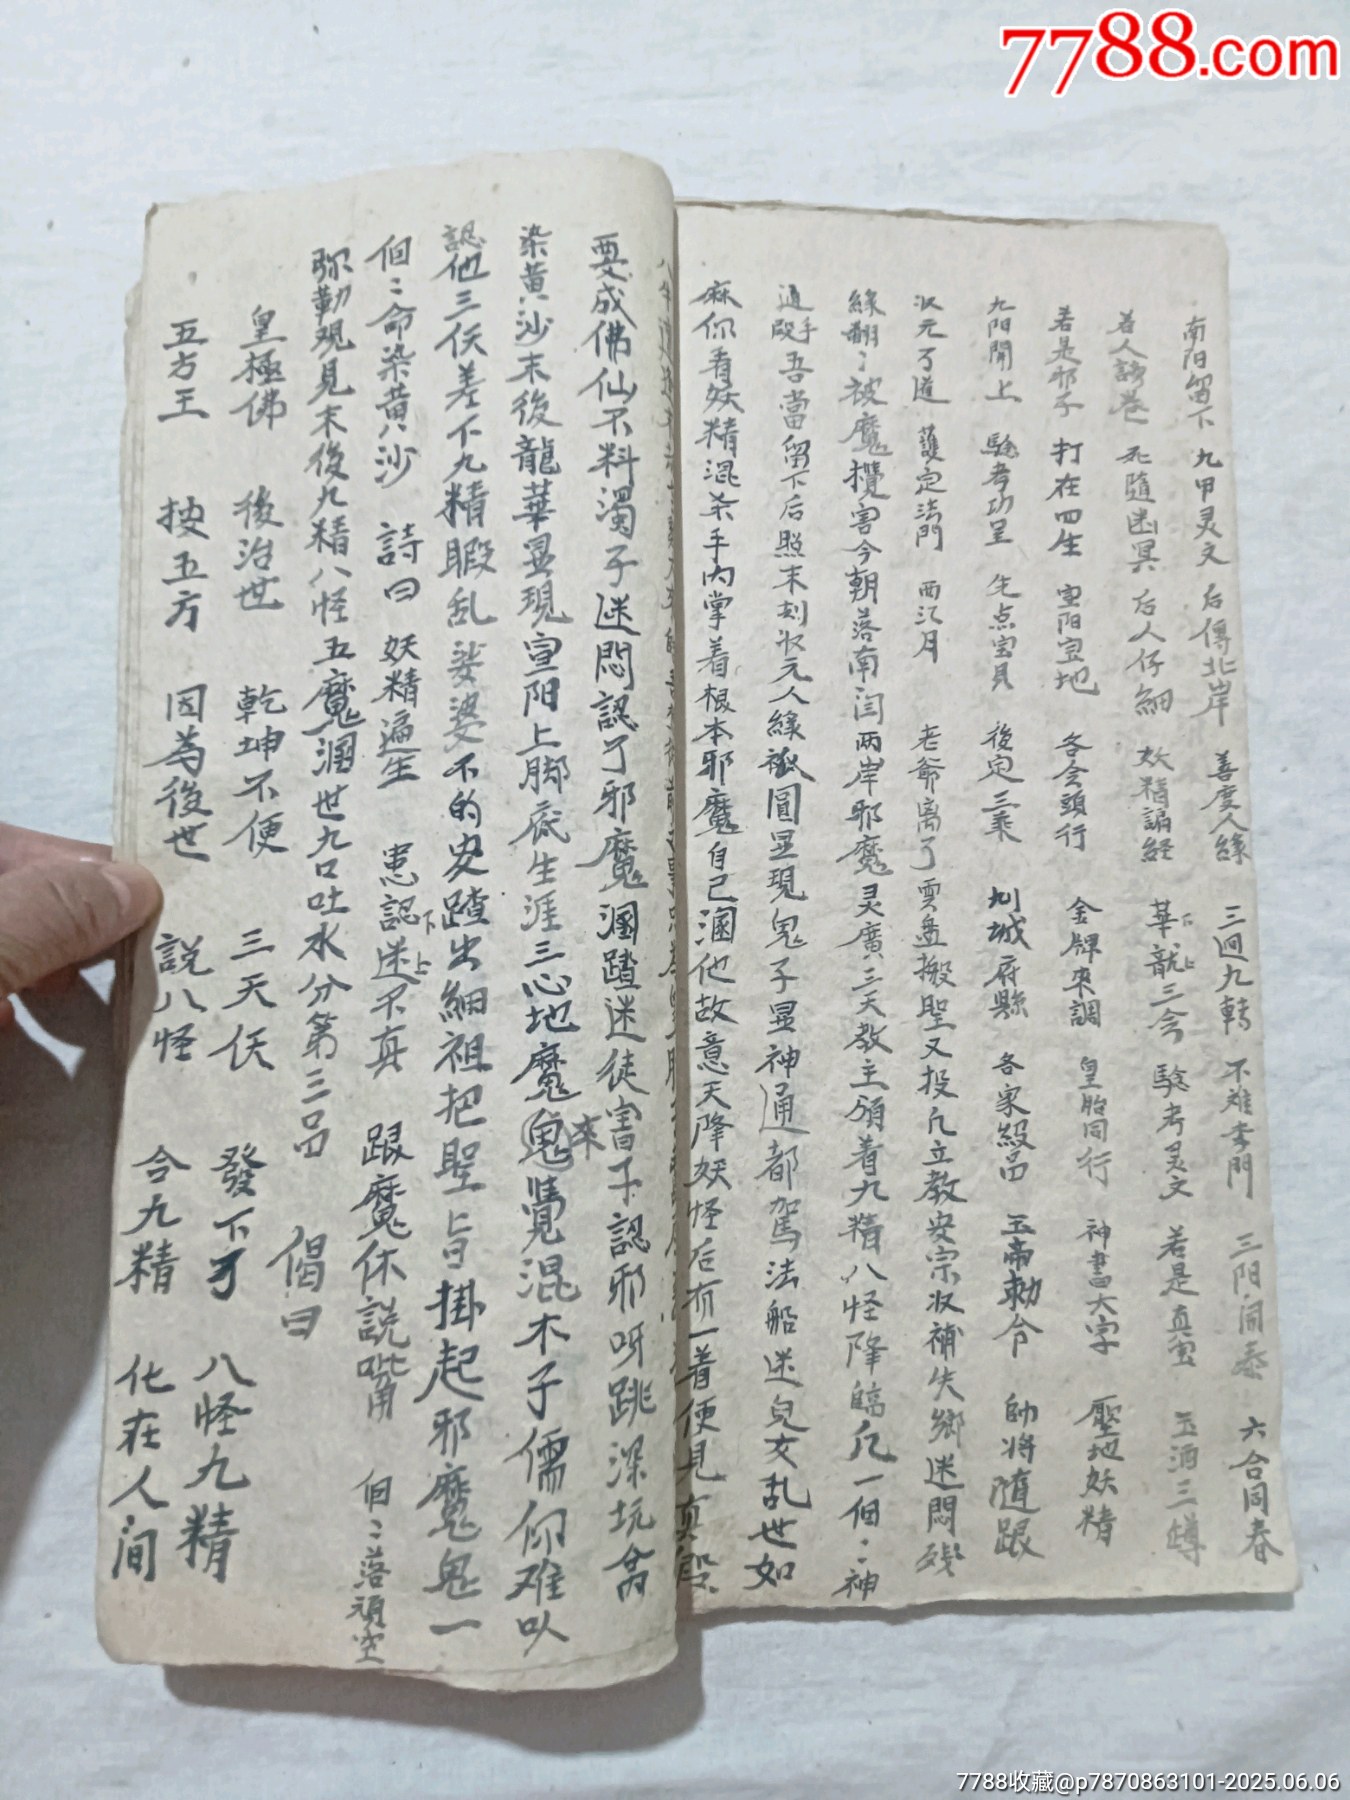 7788.com
南阳留下 九甲灵文 后傳北岸 善度人緣 三迴九轉 不难李門 三阳同泰 六合同春
若人謗卷 死隨幽冥 后人仔細 妖精謊経 華龍三令 驗考灵文 若是真宝 玉酒三罇
若是邪子 打在四生 宝阳宝地 各会頭行 金牌來調 皇胎同行 神書大字 壓地妖精
九阳開上 驗考功呈 先点宝貝 後定三乘 州城府縣 各家級品 玉帝勅令 帥將隨跟
状元了道 護定法門 西江月 老爺离了雲盘搬聖又投凡立教安宗収補失鄉迷悶殘
緣翻〻被魔攪害今朝落南闫两岸邪魔灵廣三天教主領着九精八怪降臨凡一個〻神
通手段吾當留下后照末刻状元人緣孤圓显現鬼子显神通都駕法船迷兒女乱世如
麻你看妖精混杀手内掌着根本邪魔自己溷他故意天降妖怪后有一着便見真假
要成佛仙不料濁子迷悶認了邪魔溷蹅迷徒害不認邪呀跳深坑
染黄沙末後龍華显現宣阳上脚底生涯三心地魔鬼來覺混木子儒你难以
認他三佽差下九精暇乱娑婆不的安蹅出細祖把聖旨掛起邪魔鬼一
個〻命染黄沙 詩曰 妖精遍生 患認迷不真 跟魔休說嘴 個〻落頑空
弥勒現見末後九精八怪五魔溷世九口吐水分第三品 偈曰
皇極佛 後治世 乾坤不便 三天佽 發下了 八怪九精
五方王 按五方 因為後世 説八怪 合九精 化在人间
7788收藏@p7870863101-2025.06.06